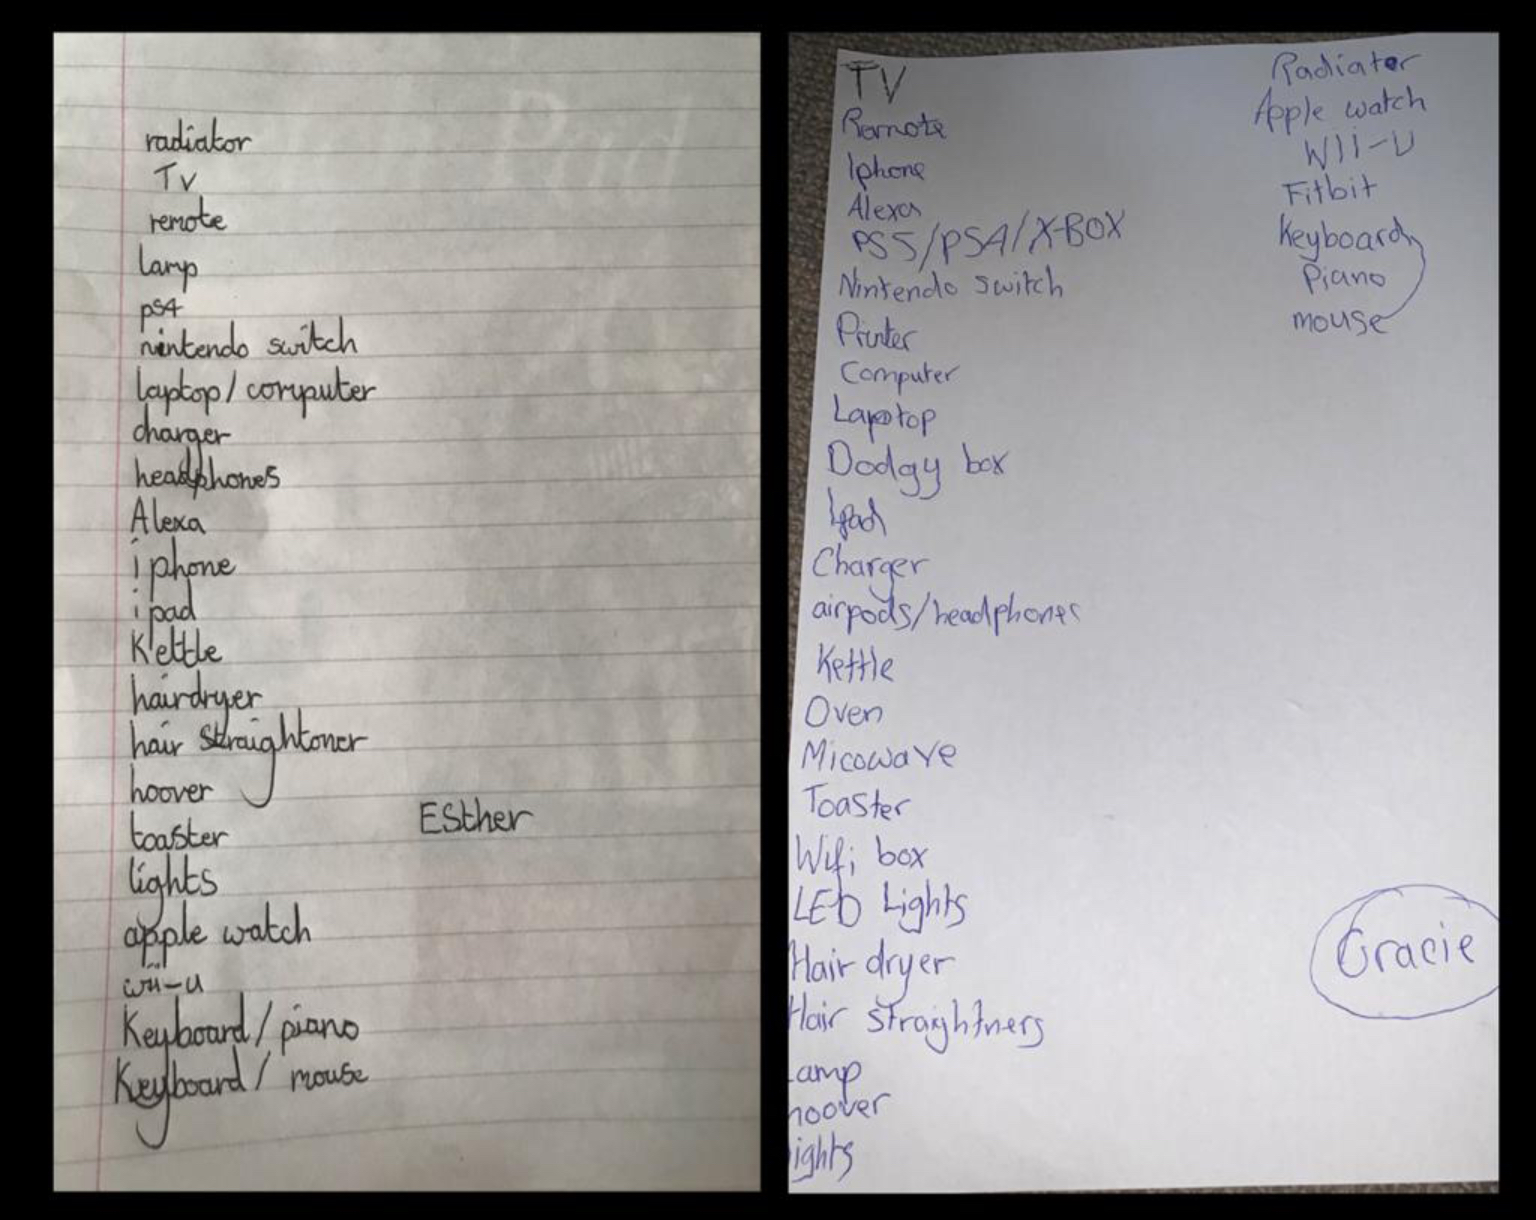 radiator
Tv
remote
lamp
ps4
nintendo switch
laptop/computer
charger
headphones
Alexa
iphone
ipad
Kettle
hairdryer
hair straightoner
hoover
toaster
lights
apple watch
wii-u
Keyboard/piano
Keyboard/ mouse
Esther
TV
Remote
Iphone
Alexa
PS5/PS4/X-BOX
Nintendo switch
Printer
Computer
Laptop
Dodgy box
Ipad
Charger
airpods/headphones
Kettle
Oven
Micowave
Toaster
Wifi box
LED Lights
Hair dryer
Hair straightners
amp
hoover
ights
Radiator
Apple watch
WIi-U
Fitbit
Keyboard
Piano
mouse
Gracie